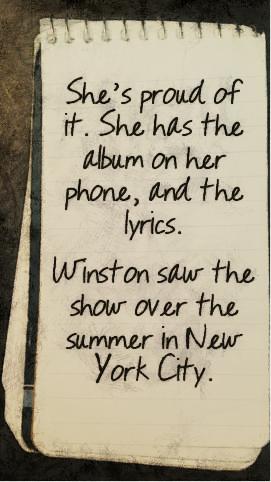 She's proud of
it. She has the
album on her
phone, and the
lyrics.
Winston saw the
show over the
summer in New
York City.